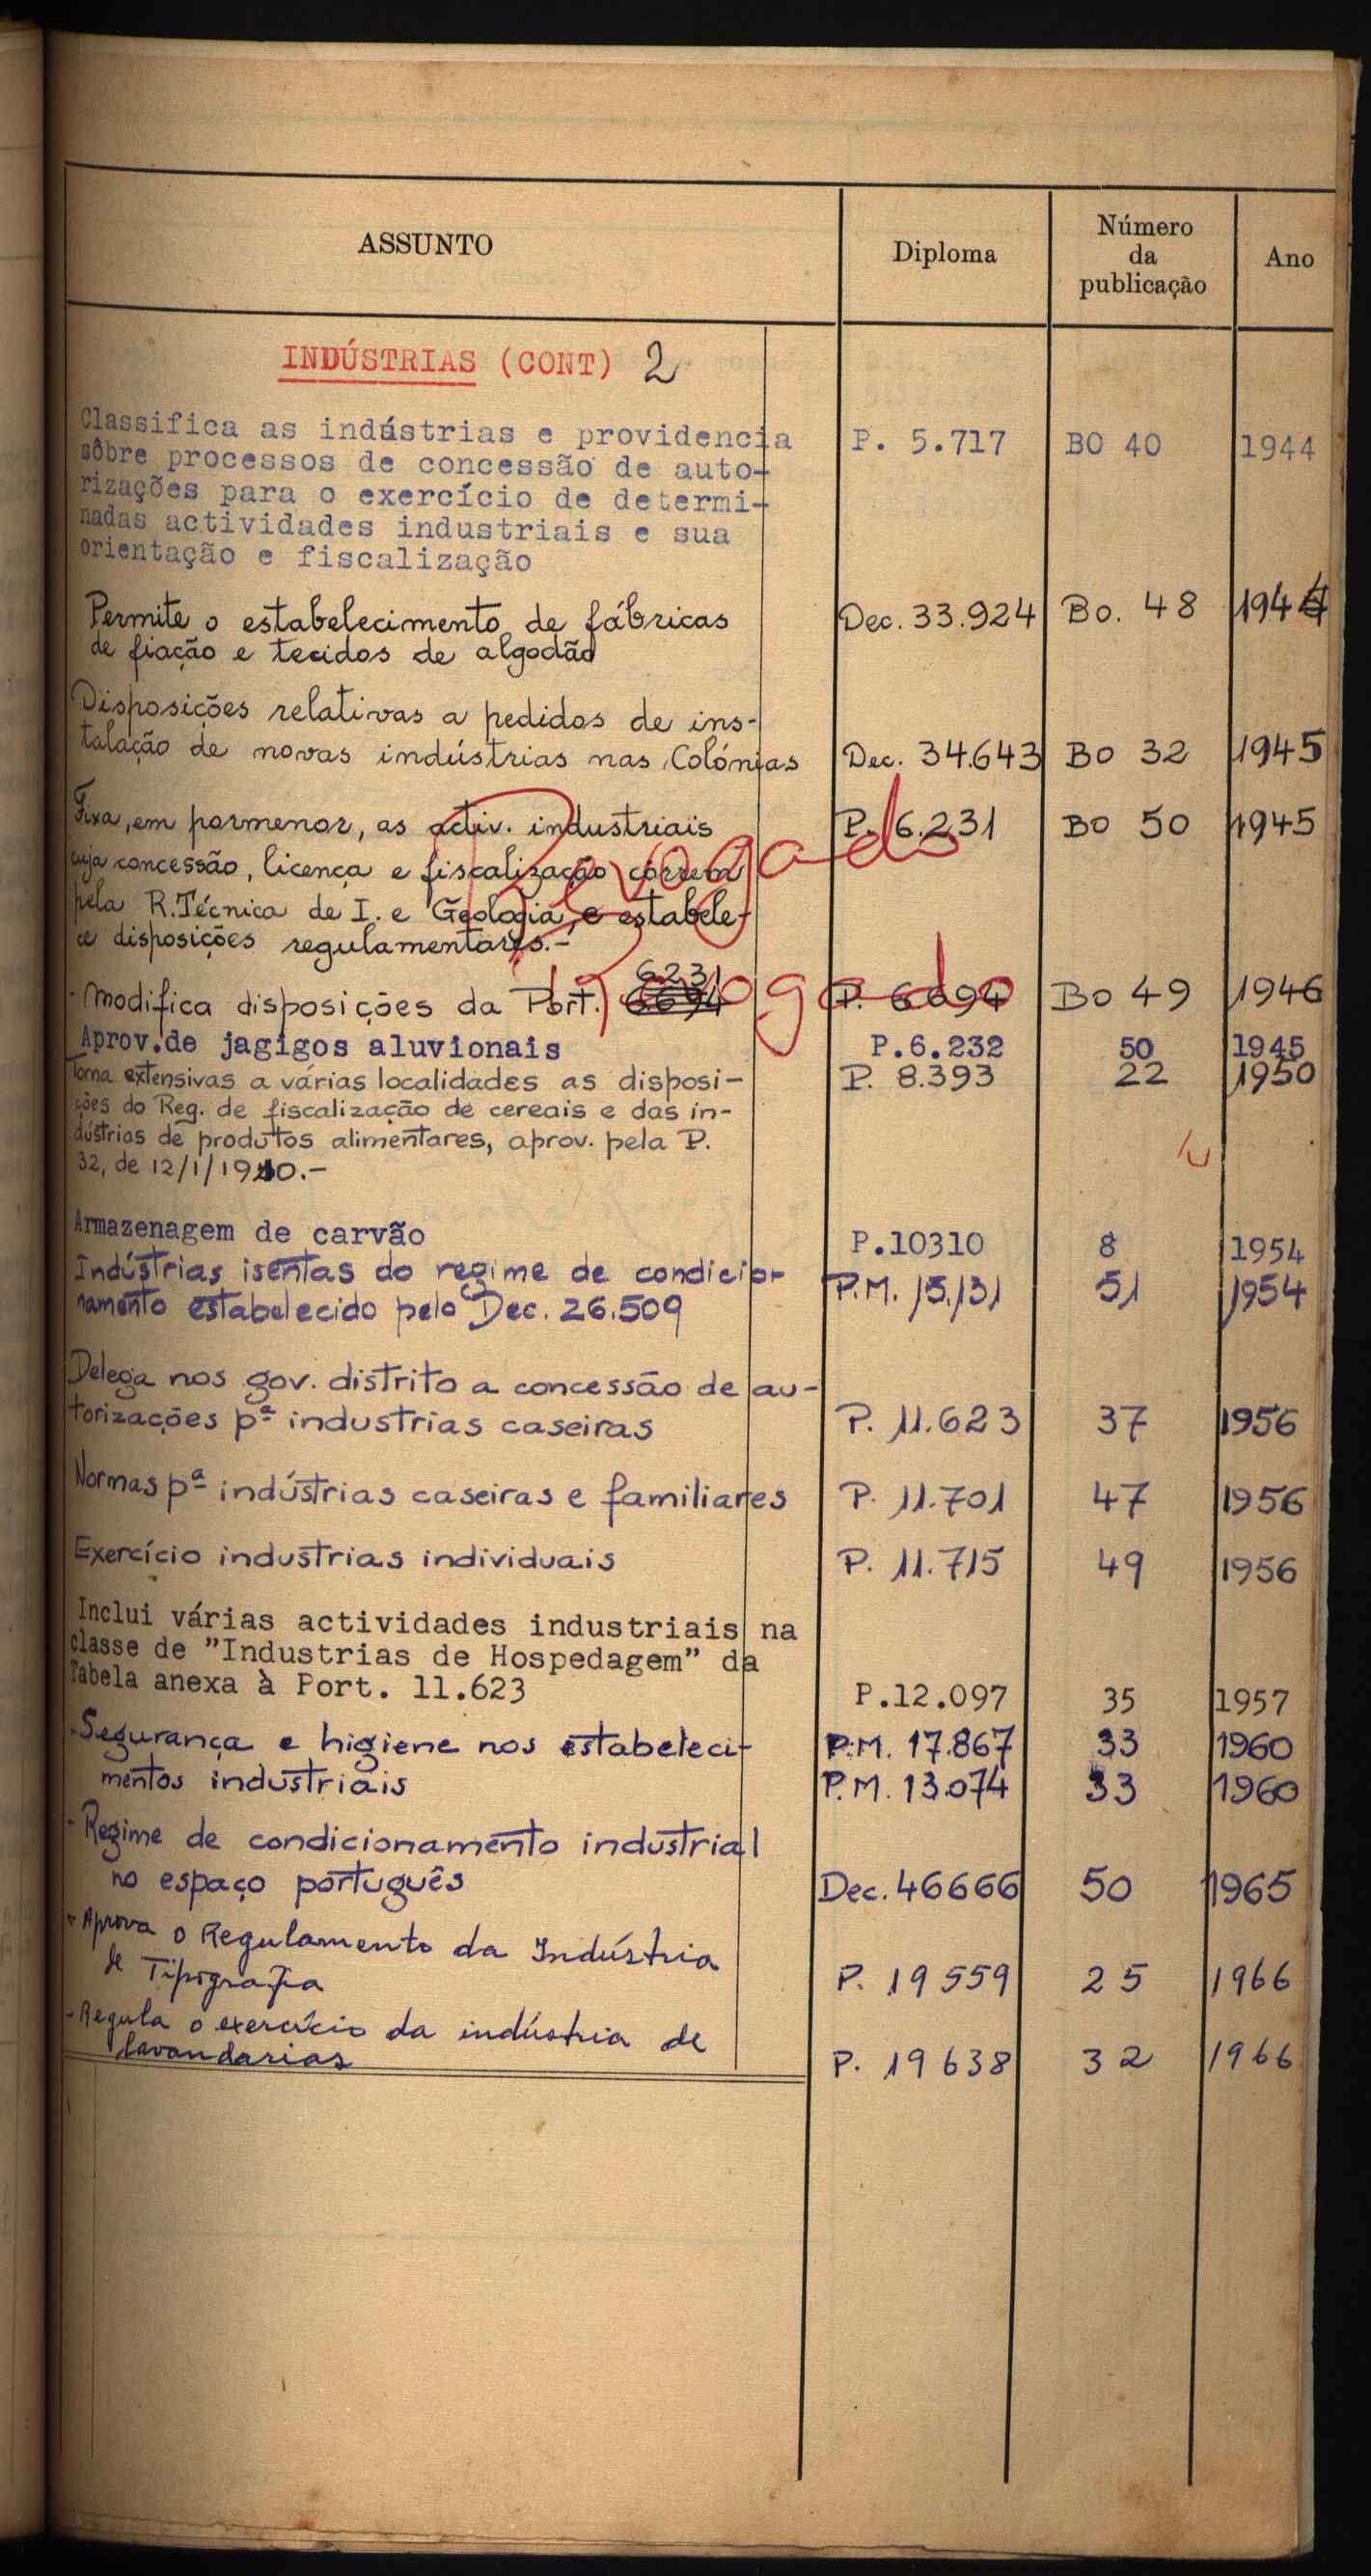 ASSUNTO Diploma Número da publicação Ano
INDÚSTRIAS (CONT) 2
Classifica as indústrias e providencia P. 5.717 BO 40 1944
sôbre processos de concessão de auto-
rizações para o exercício de determi-
nadas actividades industriais e sua
orientação e fiscalização
Permite o estabelecimento de fábricas Dec. 33.924 Bo. 48 1944
de fiação e tecidos de algodão
Disposições relativas a pedidos de ins-
talação de novas indústrias nas Colónias Dec. 34.643 BO 32 1945
Fixa, em pormenor, as activ. industriais P. 6.231 BO 50 1945
cuja concessão, licença e fiscalização correm
Revogado
pela R. Técnica de I. e Geologia, e estabele-
ce disposições regulamentares.-
6231
- Modifica disposições da Port. 6694 P. 6694 BO 49 1946
Revogado
Aprov.de jagigos aluvionais P.6.232 50 1945
Torna extensivas a várias localidades as disposi- P. 8.393 22 1950
ções do Reg. de fiscalização de cereais e das in-
dústrias de produtos alimentares, aprov. pela P.
32, de 12/1/1910.-
Armazenagem de carvão P.10310 8 1954
Indústrias isentas do regime de condicio- P.M. 15.131 51 1954
namento estabelecido pelo Dec. 26.509
Delega nos gov. distrito a concessão de au-
torizações pª industrias caseiras P. 11.623 37 1956
Normas pª indústrias caseiras e familiares P. 11.701 47 1956
Exercício industrias individuais P. 11.715 49 1956
Inclui várias actividades industriais na
classe de "Industrias de Hospedagem" da
Tabela anexa à Port. 11.623 P.12.097 35 1957
- Segurança e higiene nos estabeleci- P.M. 17.867 33 1960
mentos industriais P.M. 13.074 33 1960
- Regime de condicionamento industrial
no espaço português Dec. 46666 50 1965
- Aprova o Regulamento da Indústria
de Tipografia P. 19559 25 1966
- Regula o exercício da indústria de
lavandarias P. 19638 32 1966